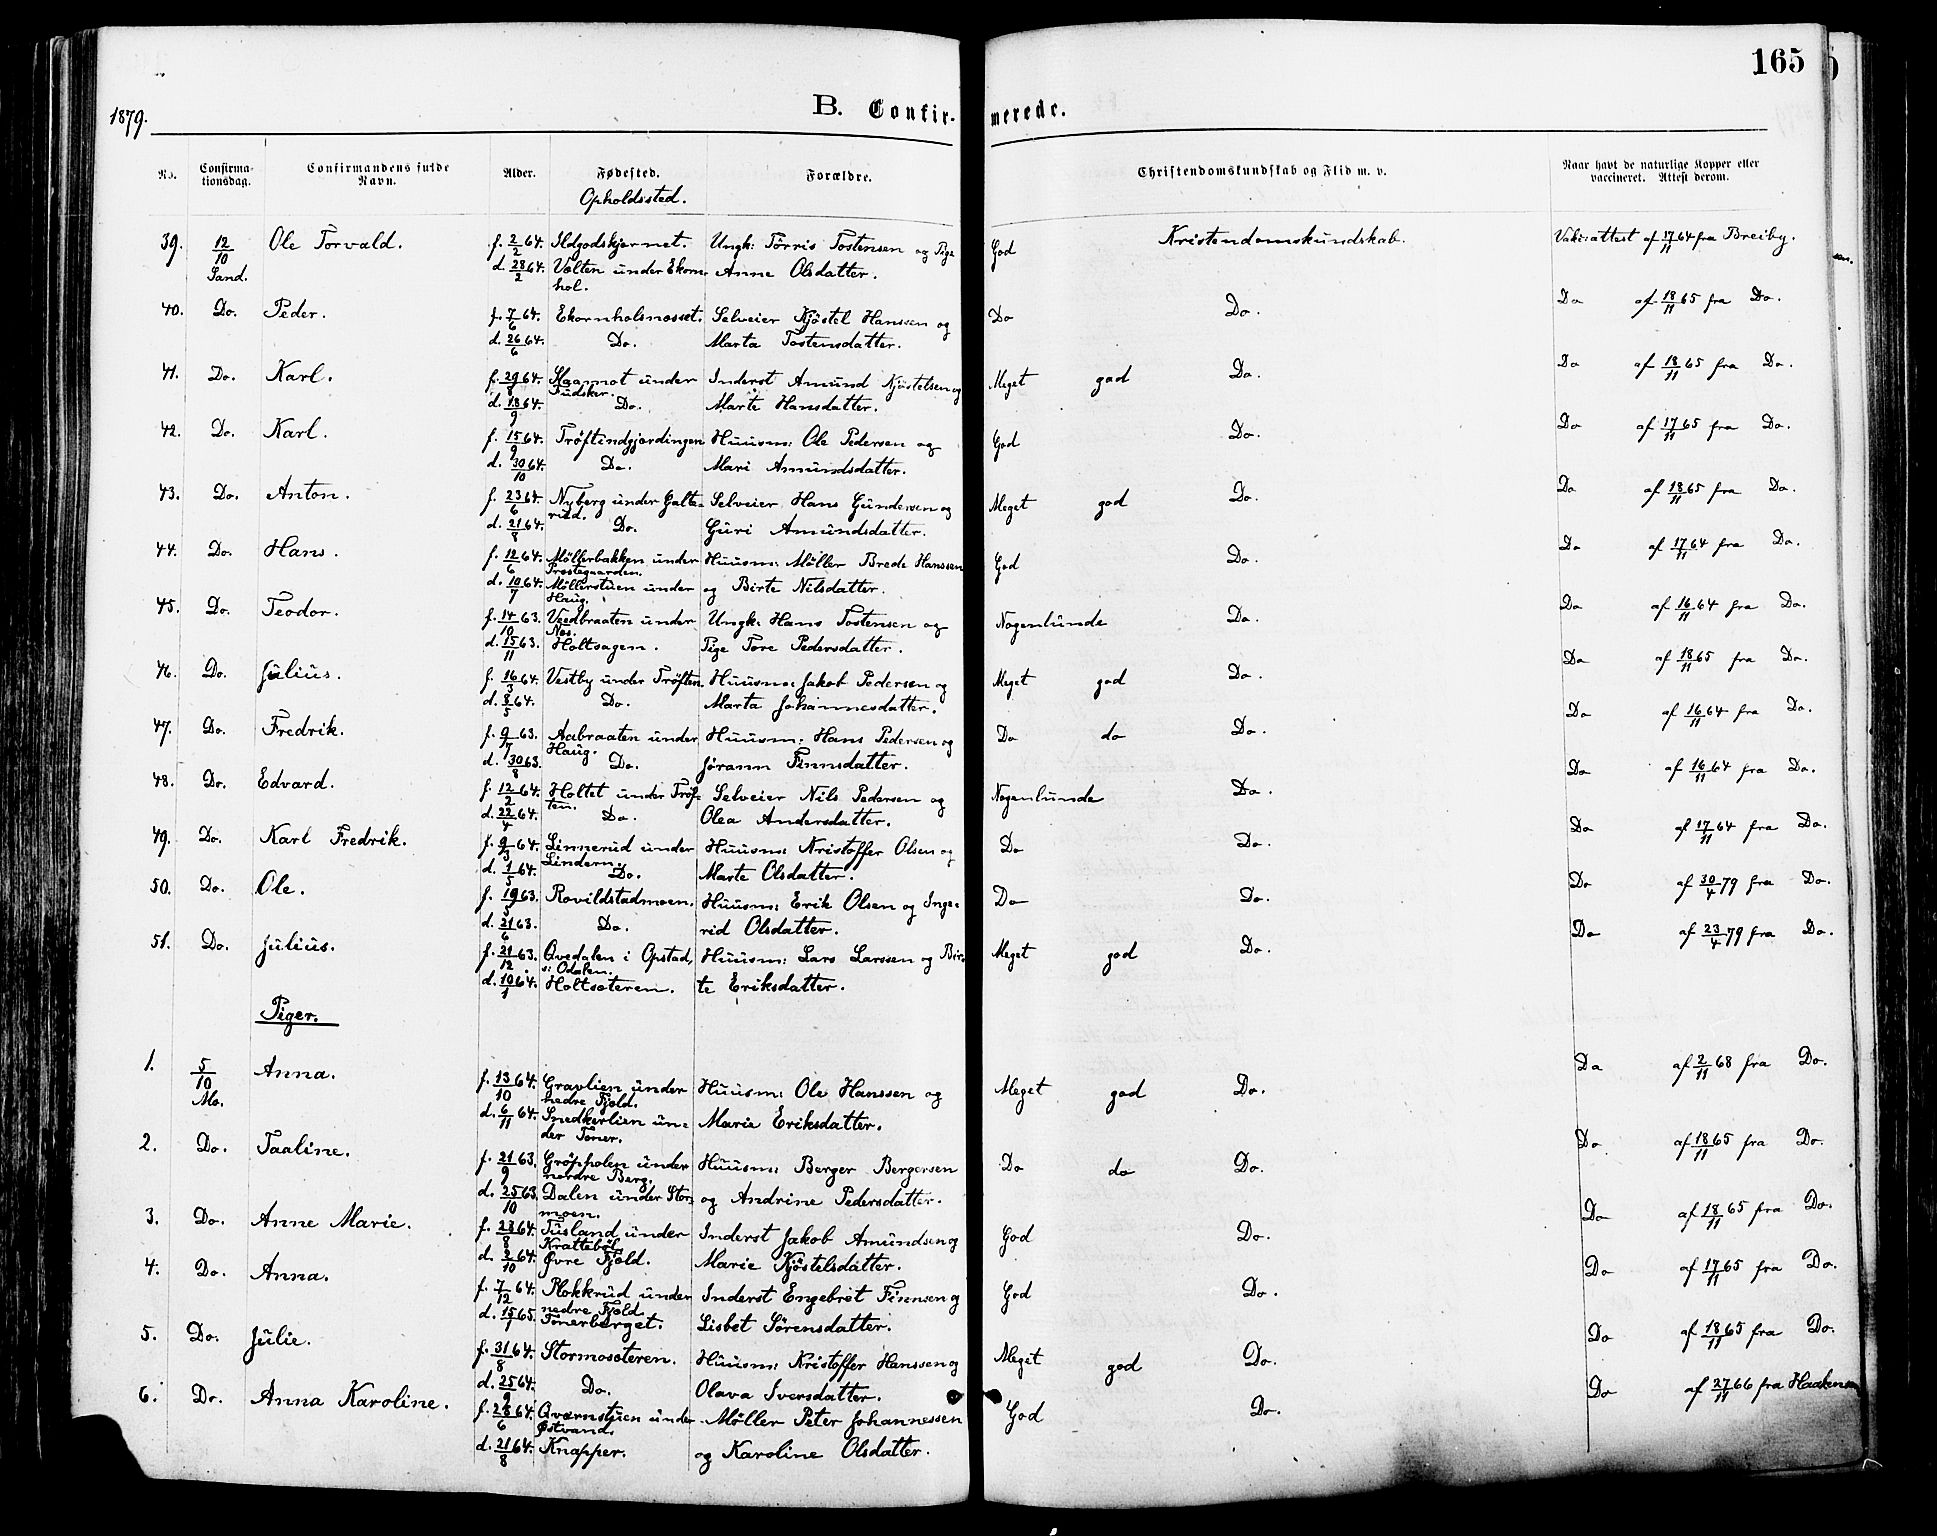 165
1879.
B. Confir- merede.
No. Confirma- Confirmandens fulde Alder. Fødested. Forældre. Christendomskundskab og Flid m. v. Naar havt de naturlige Kopper eller
tionsdag. Navn. vaccineret. Attest derom.
Opholdssted.
39. 12/10 Ole Torvald. f. 2/2 64. Ildgodskjernet. Ungk: Torris Tostensen og Pige God Kristendomskundskab. Vaks: attest af 17/11 64 fra Breiby.
Sand. d. 28/2 64. Volten under Ekorn- Anne Olsdatter.
hol.
40. Do. Peder. f. 7/6 64. Ekornholsmosset. Selveier Kjøstel Hanssen og Do Do. Do af 18/11 65 fra Do.
d. 26/6 64. Do. Marta Tostensdatter.
41. Do. Karl. f. 29/8 64. Haamot under Inderst Amund Kjøstelsen og Meget god Do. Do af 18/11 65 fra Do.
Fudsker.
d. 18/9 64. Do. Marte Hansdatter.
42. Do. Karl. f. 15/9 64. Trøftindgjerdingen Huusm: Ole Pedersen og God Do. Do af 17/11 65 fra Do.
d. 30/10 64. Do. Mari Amundsdatter.
43. Do. Anton. f. 23/6 64. Nyberg under Galte- Selveier Hans Gundersen og Meget god Do. Do af 18/11 65 fra Do.
rud.
d. 21/8 64. Do. Guri Amundsdatter.
44. Do. Hans. f. 12/6 64. Møllerbakken under Huusm: Møller Brede Hanssen God Do. Do af 17/11 64 fra Do.
Præstegaarden.
d. 10/7 64. Møllerstuen under og Birte Nilsdatter.
Haug.
45. Do. Teodor. f. 14/10 63. Veedbraaten under Ungk: Hans Tostensen og Nogenlunde Do. Do af 16/11 64 fra Do.
Nes.
d. 15/11 63. Holtsagen. Pige Tore Pedersdatter.
46. Do. Julius. f. 16/3 64. Vestby under Trøften. Huusm: Jakob Pedersen og Meget god Do. Do af 18/11 65 fra Do.
d. 8/5 64. Do. Marta Johannesdatter.
47. Do. Fredrik. f. 9/7 63. Aabraaten under Huusm: Hans Pedersen og Do do Do. Do af 16/11 64 fra Do.
Haug.
d. 30/8 63. Do. Jørann Finnsdatter.
48. Do. Edvard. f. 12/2 64. Holtet under Trøf- Selveier Nils Pedersen og Nogenlunde Do. Do af 16/11 64 fra Do.
ten.
d. 22/4 64. Do. Olea Andersdatter.
49. Do. Karl Fredrik. f. 9/3 64. Linnerud under Huusm: Kristoffer Olsen og Do Do. Do af 17/11 64 fra Do.
Lindern.
d. 1/5 64. Do. Marte Olsdatter.
50. Do. Ole. f. 19/5 63. Rovildstadmoen. Huusm: Erik Olsen og Inge- Do Do. Do af 30/4 79 fra Do.
d. 21/6 63. Do. rid Olsdatter.
51. Do. Julius. f. 21/12 63. Qvedalen i Opstad, Huusm: Lars Larssen og Bir- Meget god Do. Do af 23/4 79 fra Do.
s: Odalen.
d. 10/1 64. Holtsæteren. te Eriksdatter.
Piger.
1. 5/10 Anna. f. 13/10 64. Gravlien under Huusm: Ole Hanssen og Meget god Do. Do af 2/11 68 fra Do.
Mo. nedre Fjeld.
d. 6/11 64. Snedkerlien un- Marie Eriksdatter.
der Toner.
2. Do. Taaline. f. 21/9 63. Grøpholen under Huusm: Berger Bergersen Do do Do. Do af 18/11 65 fra Do.
nordre Berg.
d. 25/10 63. Dalen under Stor- og Andrine Pedersdatter.
moen.
3. Do. Anne Marie. f. 23/8 64. Fusland under Inderst Jakob Amundsen og God Do. Do af 18/11 65 fra Do.
Krattebøl.
d. 2/10 64. Øvre Fjeld. Marie Kjøstelsdatter.
4. Do. Anna. f. 7/12 64. Plokkrud under Inderst Engebret Finnsen og God Do. Do af 17/11 65 fra Do.
nedre Fjeld.
d. 15/1 65. Tonerberget. Lisbet Sørensdatter.
5. Do. Julie. f. 31/8 64. Stormosæteren. Huusm: Kristoffer Hanssen og Meget god Do. Do af 18/11 65 fra Do.
d. 25/9 64. Do. Olava Iversdatter.
6. Do. Anna Karoline. f. 28/6 64. Qværnstuen under Møller Peter Johannessen God Do. Do af 27/11 66 fra Haakensen
Østvand.
d. 21/8 64. Knapper. og Karoline Olsdatter.